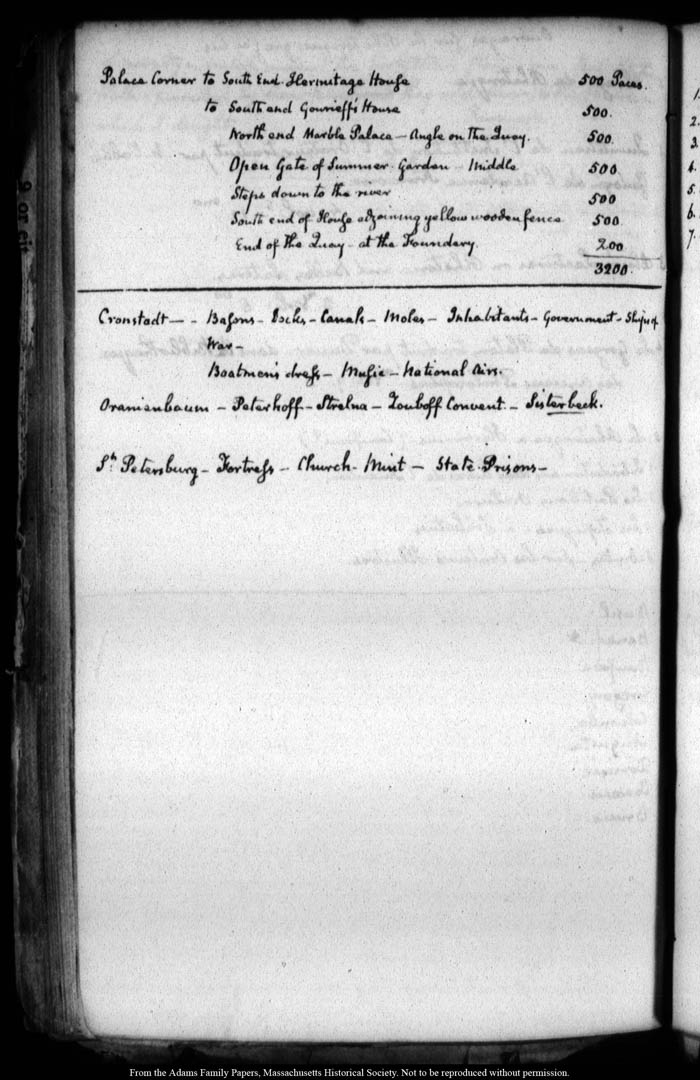 Palace Corner to South End Hermitage House 500 Paces.
to South end Gourieff's House 500.
North end Marble Palace - Angle on the Quay. 500.
Open Gate of Summer Garden - Middle 500.
Steps down to the river 500
South end of House adjoining yellow wooden fence 500.
End of the Quay - at the Foundery. 200.
3200.
Cronstadt - - Basons - Docks - Canals - Moles - Inhabitants - Government - Ships of
War -
Boatmen's dress - Music - National Airs.
Oranienbaum - Peterhoff - Strelna - Zouboff Convent. - Sisterbeck.
St. Petersburg - Fortress - Church - Mint - State Prisons -
1.
2.
3.
4.
5.
6.
7.
From the Adams Family Papers, Massachusetts Historical Society. Not to be reproduced without permission.